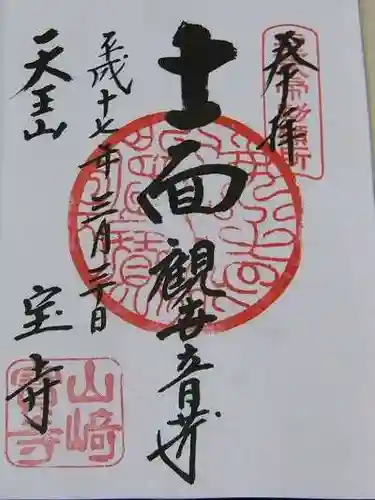 奉拝
十一面観世音𦬇
平成十七年三月三十日
天王山
宝寺
山﨑
寶寺